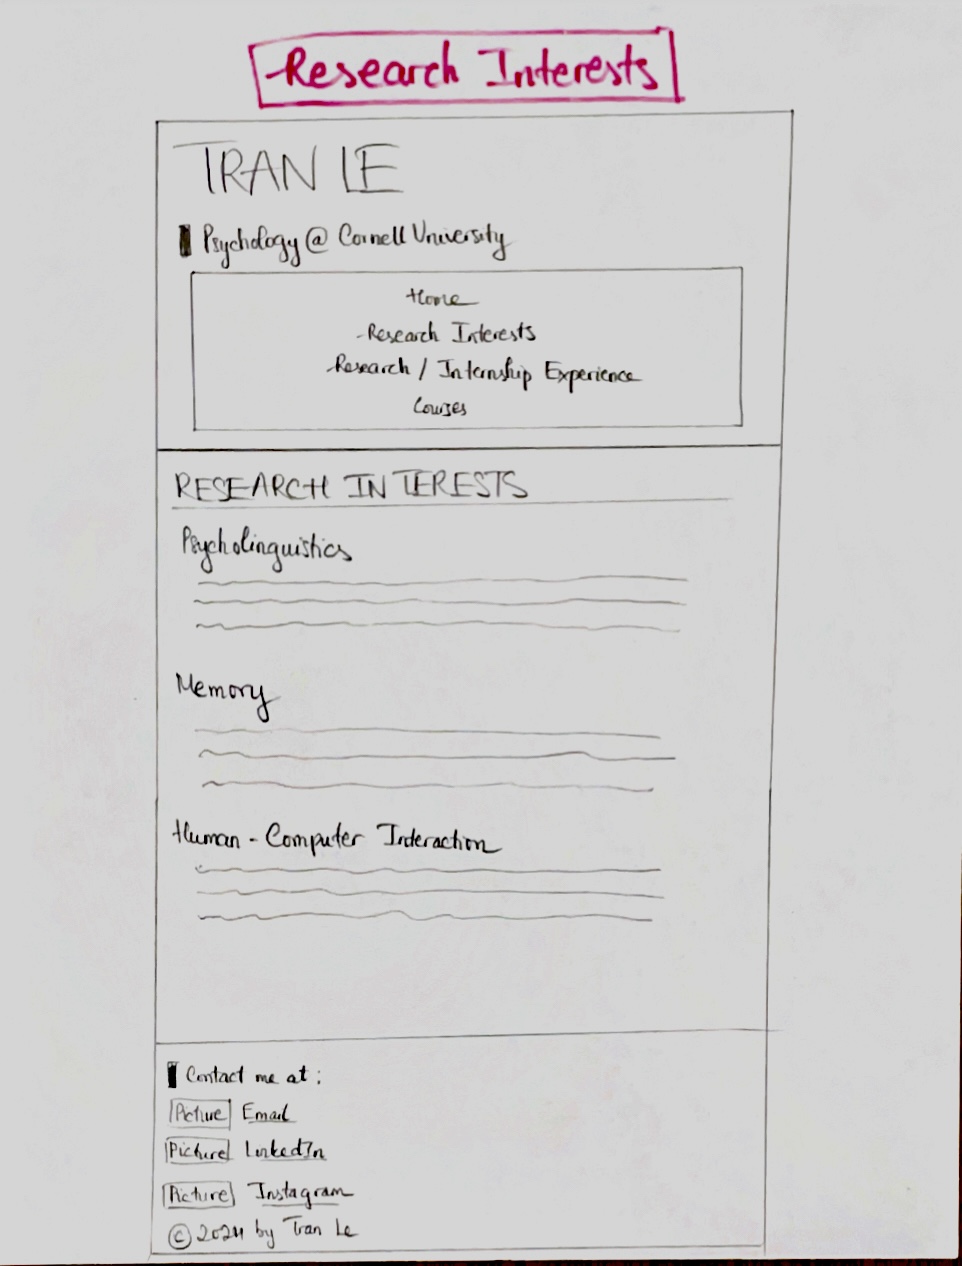 Research Interests
TRAN LE
Psychology @ Cornell University
Home
Research Interests
Research / Internship Experience
Courses
RESEARCH INTERESTS
Psycholinguistics
Memory
Human - Computer Interaction
Contact me at :
Picture Email
Picture LinkedIn
Picture Instagram
© 2024 by Tran Le